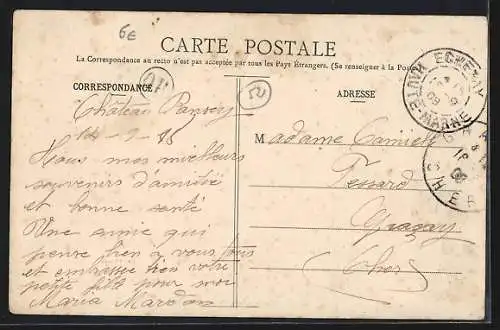 6€
CARTE POSTALE
La Correspondance au recto n'est pas acceptée par tous les Pays Étrangers. (Se renseigner à la Poste)
CORRESPONDANCE
52
ADRESSE
HAUTE-MARNE
CHER
Château
Madame Camille
Tous mes meilleurs
souvenirs d'amitié
et bonne santé
Une amie qui
pense bien à vous tous
et embrasse bien votre
petite fille pour moi
Maria
Graçay
Cher